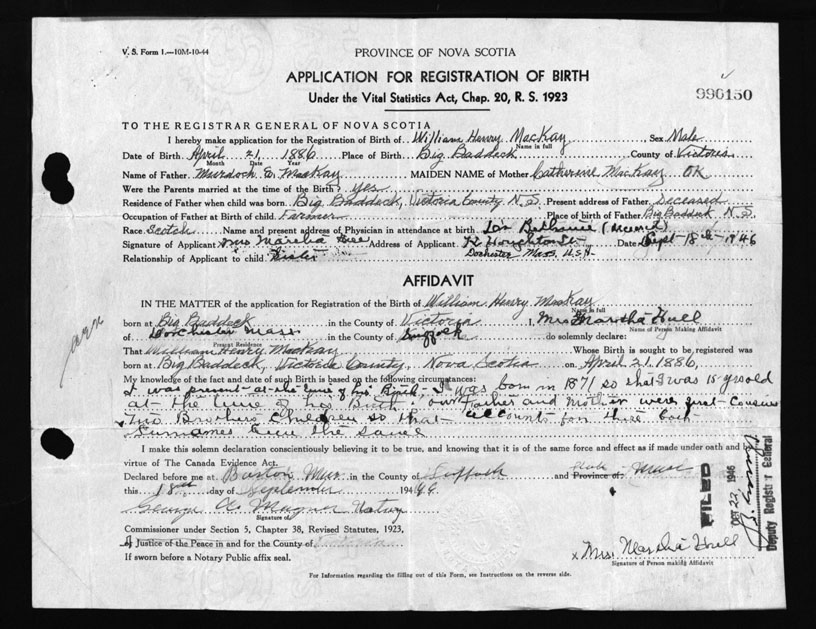 V. S. Form 1.—10M-10-44
PROVINCE OF NOVA SCOTIA
APPLICATION FOR REGISTRATION OF BIRTH
Under the Vital Statistics Act, Chap. 20, R. S. 1923
990150
TO THE REGISTRAR GENERAL OF NOVA SCOTIA
I hereby make application for the Registration of Birth of William Henry MacKay Sex Male
Name in full
Date of Birth April 21, 1886 Place of Birth Big Baddeck County of Victoria
Month Date Year
Name of Father Murdoch E. MacKay MAIDEN NAME of Mother Catherine MacKay OK
Were the Parents married at the time of the Birth? yes
Residence of Father when child was born Big Baddeck, Victoria County N.S. Present address of Father Deceased
Occupation of Father at Birth of child Farmer Place of birth of Father Big Baddeck N.S.
Race Scotch Name and present address of Physician in attendance at birth Bethune (Deceased)
Signature of Applicant Mrs Martha Hull Address of Applicant Houghton St Date Sept 18th 1946
Relationship of Applicant to child Sister Dochester Mass. U.S.A.
AFFIDAVIT
IN THE MATTER of the application for Registration of the Birth of William Henry MacKay
Name in full
born at Big Baddeck in the County of Victoria I, Mrs Martha Hull
Name of Person Making Affidavit
of Dorchester Mass in the County of Suffolk do solemnly declare:
Present Residence
That William Henry MacKay Whose Birth is sought to be registered was
born at Big Baddeck, Victoria County, Nova Scotia on April 21, 1886,
My knowledge of the fact and date of such Birth is based on the following circumstances:
I was present at the time of his Birth. I was born in 1871 so that I was 15 yrs old
at the time of his Birth, our Father and Mother were first cousins
Two Brothers Children so that accounts for their both
Surnames being the same
I make this solemn declaration conscientiously believing it to be true, and knowing that it is of the same force and effect as if made under oath and by
virtue of The Canada Evidence Act.
Declared before me at Boston Mass in the County of Suffolk and Province of State Mass
this 18th day of September 1946.
George A. Notary
Signature of
Commissioner under Section 5, Chapter 38, Revised Statutes, 1923,
A Justice of the Peace in and for the County of
If sworn before a Notary Public affix seal.
x Mrs. Martha Hull
Signature of Person making Affidavit
For Information regarding the filling out of this Form, see Instructions on the reverse side.
FILED
OCT 22 1946
Deputy Registrar General